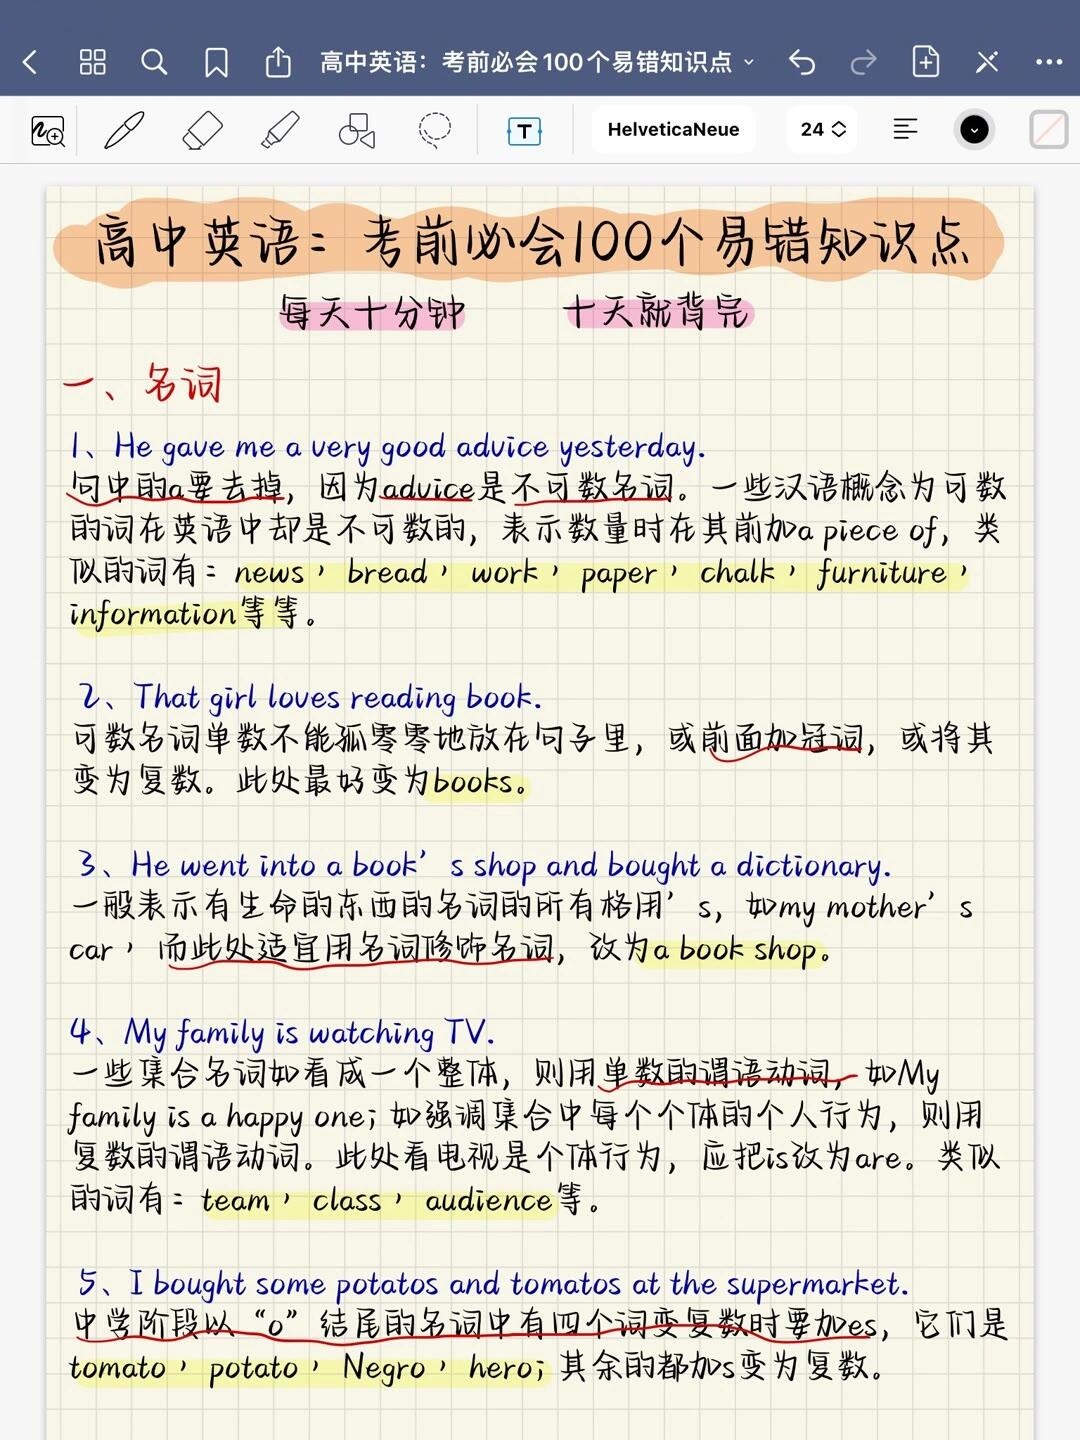 高中英语：考前必会100个易错知识点
HelveticaNeue
24
高中英语：考前必会100个易错知识点
每天十分钟 十天就背完
一、名词
1、He gave me a very good advice yesterday.
句中的a要去掉，因为advice是不可数名词。一些汉语概念为可数
的词在英语中却是不可数的，表示数量时在其前加a piece of，类
似的词有：news，bread，work，paper，chalk，furniture，
information等等。
2、That girl loves reading book.
可数名词单数不能孤零零地放在句子里，或前面加冠词，或将其
变为复数。此处最好变为books。
3、He went into a book’s shop and bought a dictionary.
一般表示有生命的东西的名词的所有格用’s，如my mother’s
car，而此处适宜用名词修饰名词，改为a book shop。
4、My family is watching TV.
一些集合名词如看成一个整体，则用单数的谓语动词，如My
family is a happy one；如强调集合中每个个体的个人行为，则用
复数的谓语动词。此处看电视是个体行为，应把is改为are。类似
的词有：team，class，audience等。
5、I bought some potatos and tomatos at the supermarket.
中学阶段以“o”结尾的名词中有四个词变复数时要加es，它们是
tomato，potato，Negro，hero；其余的都加s变为复数。